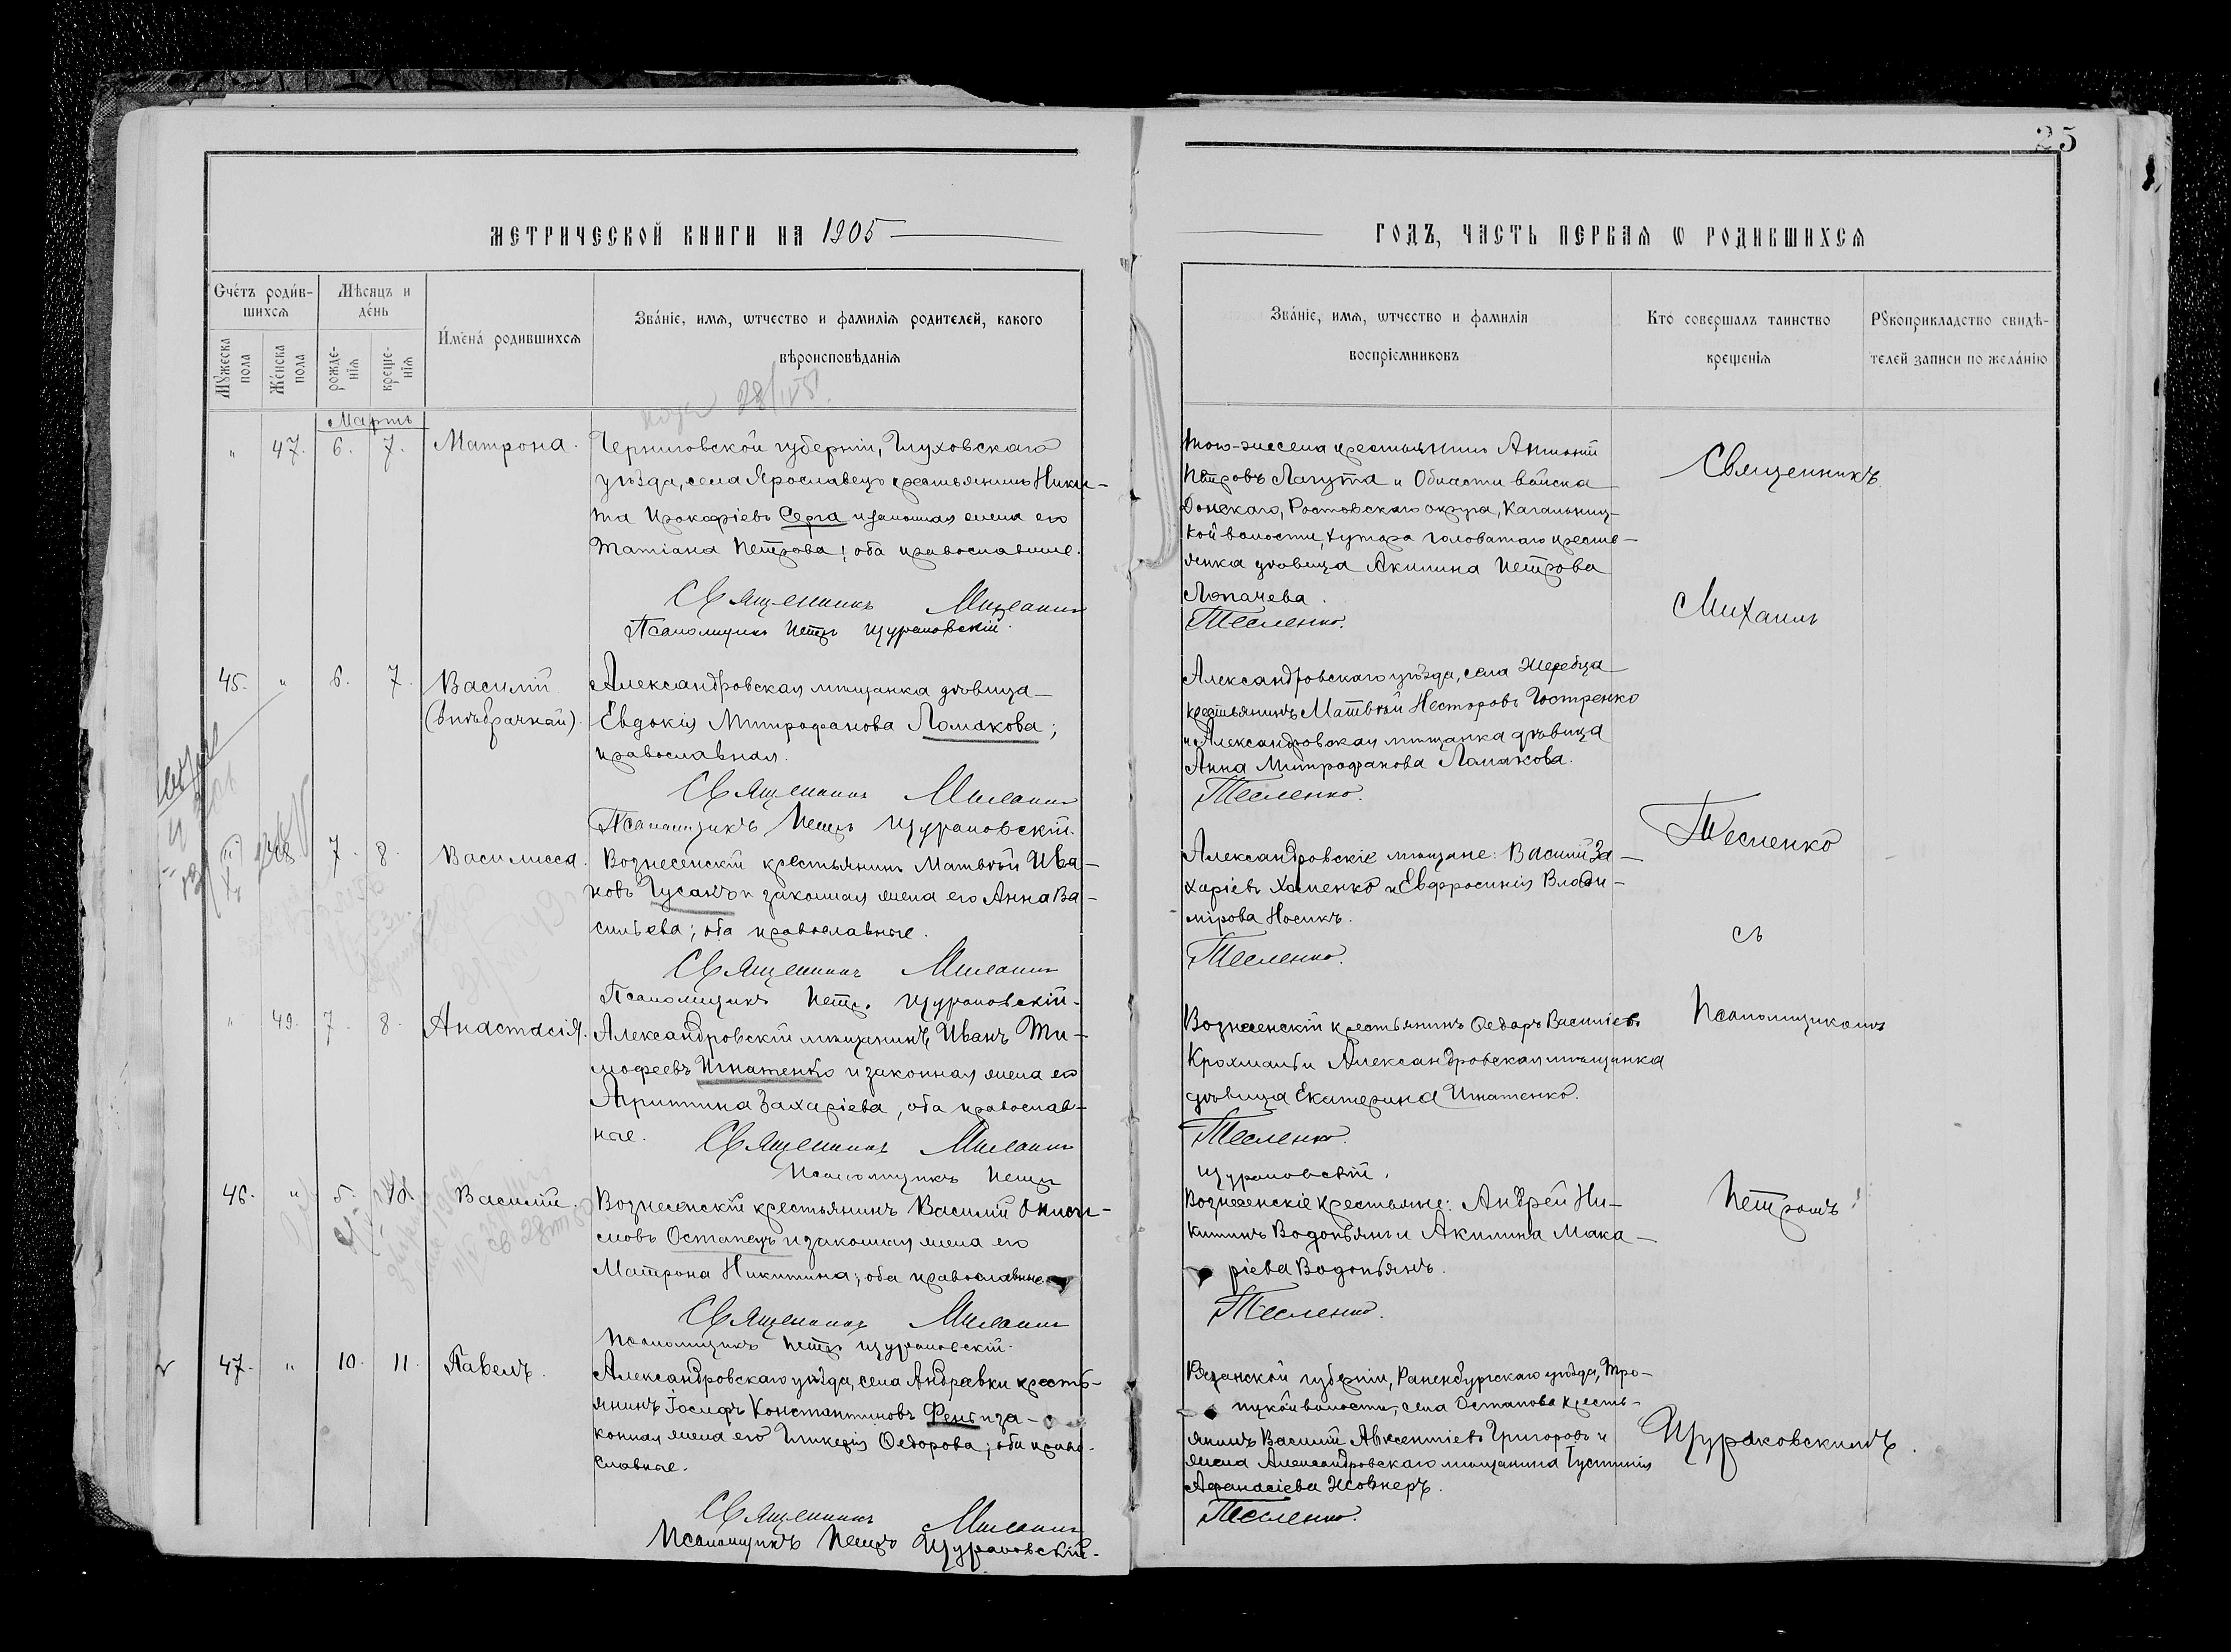 25
МЕТРИЧЕСКОЙ КНИГИ НА 1905
ГОДЪ, ЧАСТЬ ПЕРВАЯ Ѡ РОДИВШИХСЯ
Счетъ родив-
шихся
Мѣсяцъ и
день
Имена родившихся
Званіе, имя, ѿчество и фамилія родителей, какого
вѣроисповѣданія
Мꙋжеска пола
Женска пола
рожде-
нія
креще-
нія
Званіе, имя, ѿчество и фамилія
воспріемниковъ
Кто совершалъ таинство
крещенія
Рꙋкоприкладство свидѣ-
телей записи по желанію
28/IV
Мартъ
" 47. 6. 7. Матрона.
Черниговской губерніи, Глуховскаго
уѣзда, села Ярославецъ крестьянинъ Ники-
та Прокофіевъ Серга и законная жена его
Татіана Петрова; оба православные.
Священникъ Михаилъ
Псаломщикъ Петръ Щураковскій.
того-же села крестьянинъ Антоній
Петровъ Лагута и Области войска
Донскаго, Ростовскаго округа, Кагальниц-
кой волости, хутора Головатаго кресть-
янка дѣвица Акилина Петрова
Лопачева.
Тесленко.
45. " 6. 7. Василій
(внѣбрачный).
Александровская мѣщанка дѣвица
Евдокія Митрофанова Ломакова;
православная.
Священникъ Михаилъ
Псаломщикъ Петръ Щураковскій.
Александровскаго уѣзда, села Жеребца
крестьянинъ Матвѣй Несторовъ Гостренко
и Александровская мѣщанка дѣвица
Анна Митрофанова Ломакова.
Тесленко.
48 7. 8. Василисса.
Вознесенскій крестьянинъ Матвѣй Ива-
новъ Гусакъ и законная жена его Анна Ва-
сильева; оба православные.
Священникъ Михаилъ
Псаломщикъ Петръ Щураковскій.
Александровскіе мѣщане: Василій За-
харіевъ Хоменко и Евфросинія Влади-
мірова Носикъ.
Тесленко.
" 49. 7. 8. Анастасія.
Александровскій мѣщанинъ Иванъ Ти-
мофеевъ Игнатенко и законная жена его
Агриппина Захаріева, оба православ-
ные.
Священникъ Михаилъ
Псаломщикъ Петръ
Вознесенскій крестьянинъ Ѳедоръ Василіевъ
Крохмаль и Александровская мѣщанка
дѣвица Екатерина Игнатенко.
Тесленко.
Щураковскій.
46. " 5. 10. Василій.
Вознесенскій крестьянинъ Василій Ониси-
мовъ Остапецъ и законная жена его
Матрона Никитина; оба православные.
Священникъ Михаилъ
Псаломщикъ Петръ Щураковскій.
Вознесенскіе крестьяне: Андрей Ни-
китинъ Водопьянъ и Акилина Мака-
ріева Водопьянъ.
Тесленко.
47. " 10. 11. Павелъ.
Александровскаго уѣзда, села Андреевки кресть-
янинъ Іосифъ Константиновъ Фень и за-
конная жена его Гликерія Ѳедорова; оба право-
славные.
Священникъ Михаилъ
Псаломщикъ Петръ Щураковскій.
Рязанской губерніи, Раненбургскаго уѣзда, Тро-
волости, села Остапова кресть-
янинъ Василій Авксентіевъ Григоровъ и
жена Александровскаго мѣщанина Іустинія
Афанасіева Жовнеръ.
Тесленко.
Священникъ
Михаилъ
Тесленко
съ
Псаломщикомъ
Петромъ
Щураковскимъ.